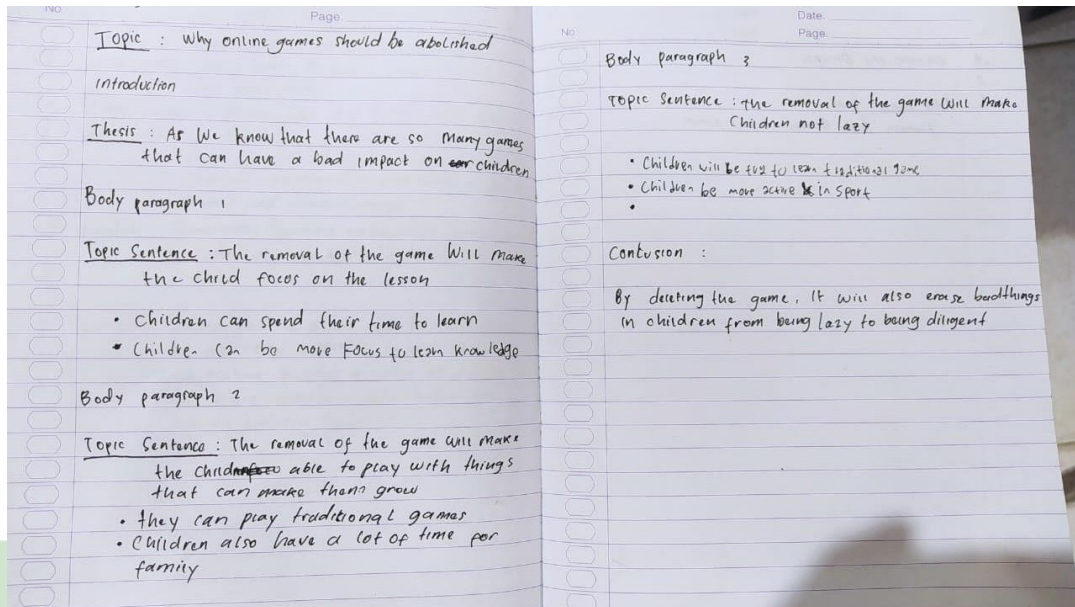 No
Page
Topic : Why online games should be abolished
introduction
Thesis : As we know that there are so many games
that can have a bad impact on children
Body paragraph 1
Topic Sentence : The removal of the game will make
the child focos on the lesson
• Children can spend their time to learn
• Children can be more Focus to learn knowledge
Body paragraph 2
Topic Sentence : The removal of the game will make
the child able to play with things
that can make them grow
• they can play traditional games
• Children also have a lot of time for
family
Date.
No
Page.
Body paragraph 3
Topic Sentence : The removal of the game will make
Children not lazy
• Children will be to learn traditional game
• Children be more active in sport
•
Conclusion :
By deleting the game, It will also erase bad things
in children from being lazy to being diligent